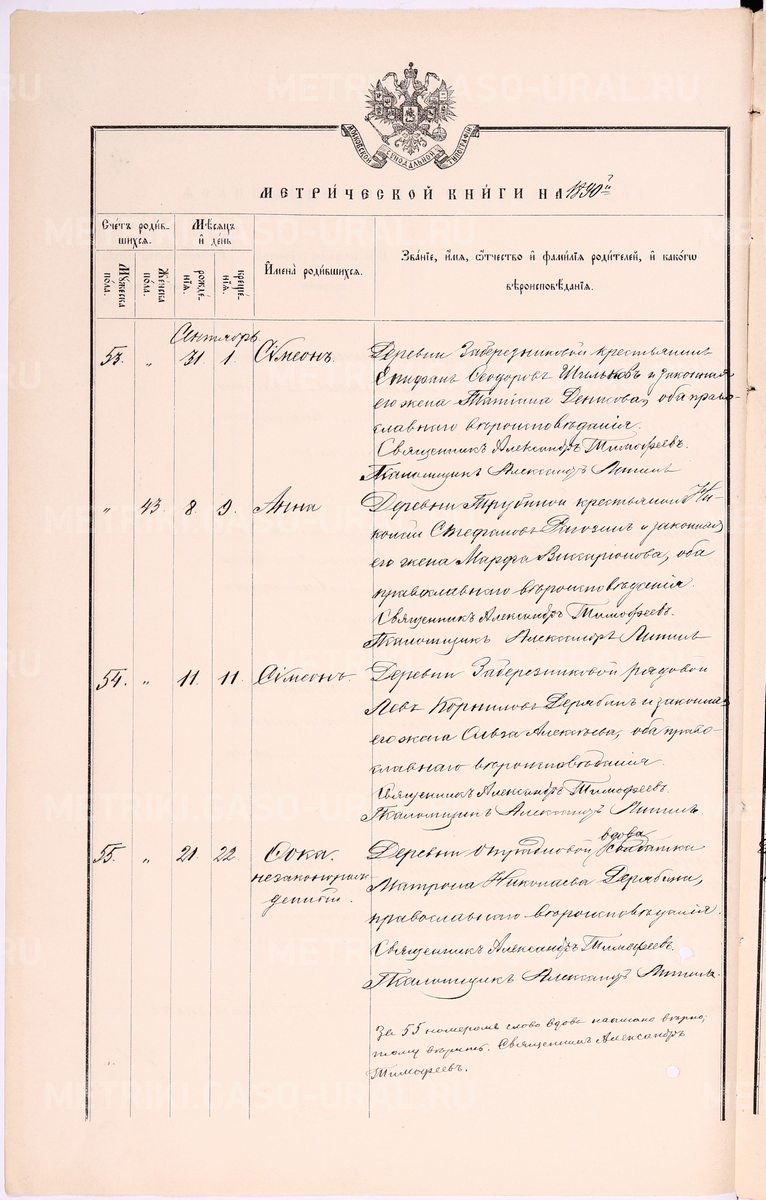 МОСКОВСКОЙ СѴНОДАЛЬНОЙ ТИПОГРАФІИ
МЕТРИ́ЧЕСКОЙ КНИ́ГИ НА 1890 й
Сче́тъ роди́в-
шихся.
Мѣ́сяцъ
и҆ де́нь
И҆мена̀ роди́вшихся.
Зва́нїе, и҆́мя, ѻ҆́тчество и҆ фами́лїя роди́телей, и҆ како́гѡ
вѣроисповѣ́данїя.
Мꙋ́жеска
по́ла.
Же́нска
по́ла.
рожде́-
нїя.
креще́-
нїя.
Сентябрь
53. „ 31 1. Сѵмеонъ.
Деревни Заберезниковой крестьянинъ
Епифанъ Ѳеодоровъ и законная
его жена Татіана Денисова, оба право-
славнаго вѣроисповѣданія.
Священникъ Александръ Тимофеевъ.
Псаломщикъ Александръ
„ 43 8. 9. Анна
Деревни Трубиной крестьянинъ Ни-
колай Стефановъ и законная
его жена Марѳа Виссаріонова, оба
православнаго вѣроисповѣданія.
Священникъ Александръ Тимофеевъ.
Псаломщикъ Александръ
54. „ 11. 11. Сѵмеонъ.
Деревни Заберезниковой рядовой
Левъ Корниловъ Дерябинъ и законная
его жена Ольга Алексѣева, оба право-
славнаго вѣроисповѣданія.
Священникъ Александръ Тимофеевъ.
Псаломщикъ Александръ
55. „ 21. 22. Ѳока.
незаконорож-
денный.
вдова
Деревни солдатка
Матрона Николаева Дерябина,
православнаго вѣроисповѣданія.
Священникъ Александръ Тимофеевъ.
Псаломщикъ Александръ
За 55 номеромъ слово вдова написано вѣрно,
тому вѣрить. Священникъ Александръ
Тимофеевъ.
METRIKI.GASO-URAL.RU